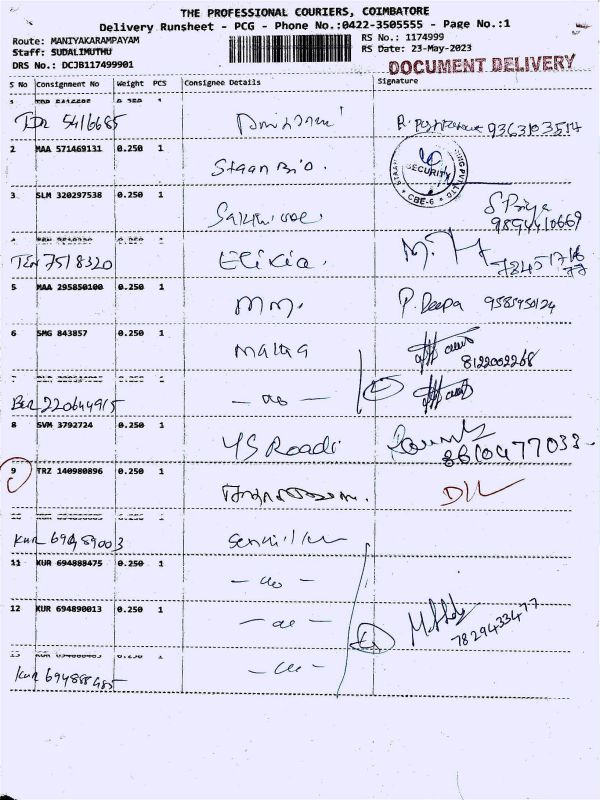 THE PROFESSIONAL COURIERS, COIMBATORE
Delivery Runsheet - PCG - Phone No.:0422-3505555 - Page No.:1
Route: MANIYAKARAMPAYAM
RS No.: 1174999
Staff: SUDALIMUTHU
RS Date: 23-May-2023
DRS No.: DCJB117499901
DOCUMENT DELIVERY
S No Consignment No Weight PCS Consignee Details Signature
TDR 5416685 9363103514
2 MAA 571469131 0.250 1 Staan Bio. SECURITY CBE-6
3 SLM 320297538 0.250 1 S Priya
9894410669
TEN 7518320
5 MAA 295850100 0.250 1 M M. P. Deepa 9585950124
6 SMG 843857 0.250 1 Malta 8122002268
BER 220644915 - do -
8 SVM 3792724 0.250 1 YS Roadi 8610477033
9 TRZ 140980896 0.250 1 D/L
KUR 69489003
11 KUR 694888475 0.250 1 - do -
12 KUR 694890013 0.250 1 - do - 7829433477
KUR 694888485 - do -